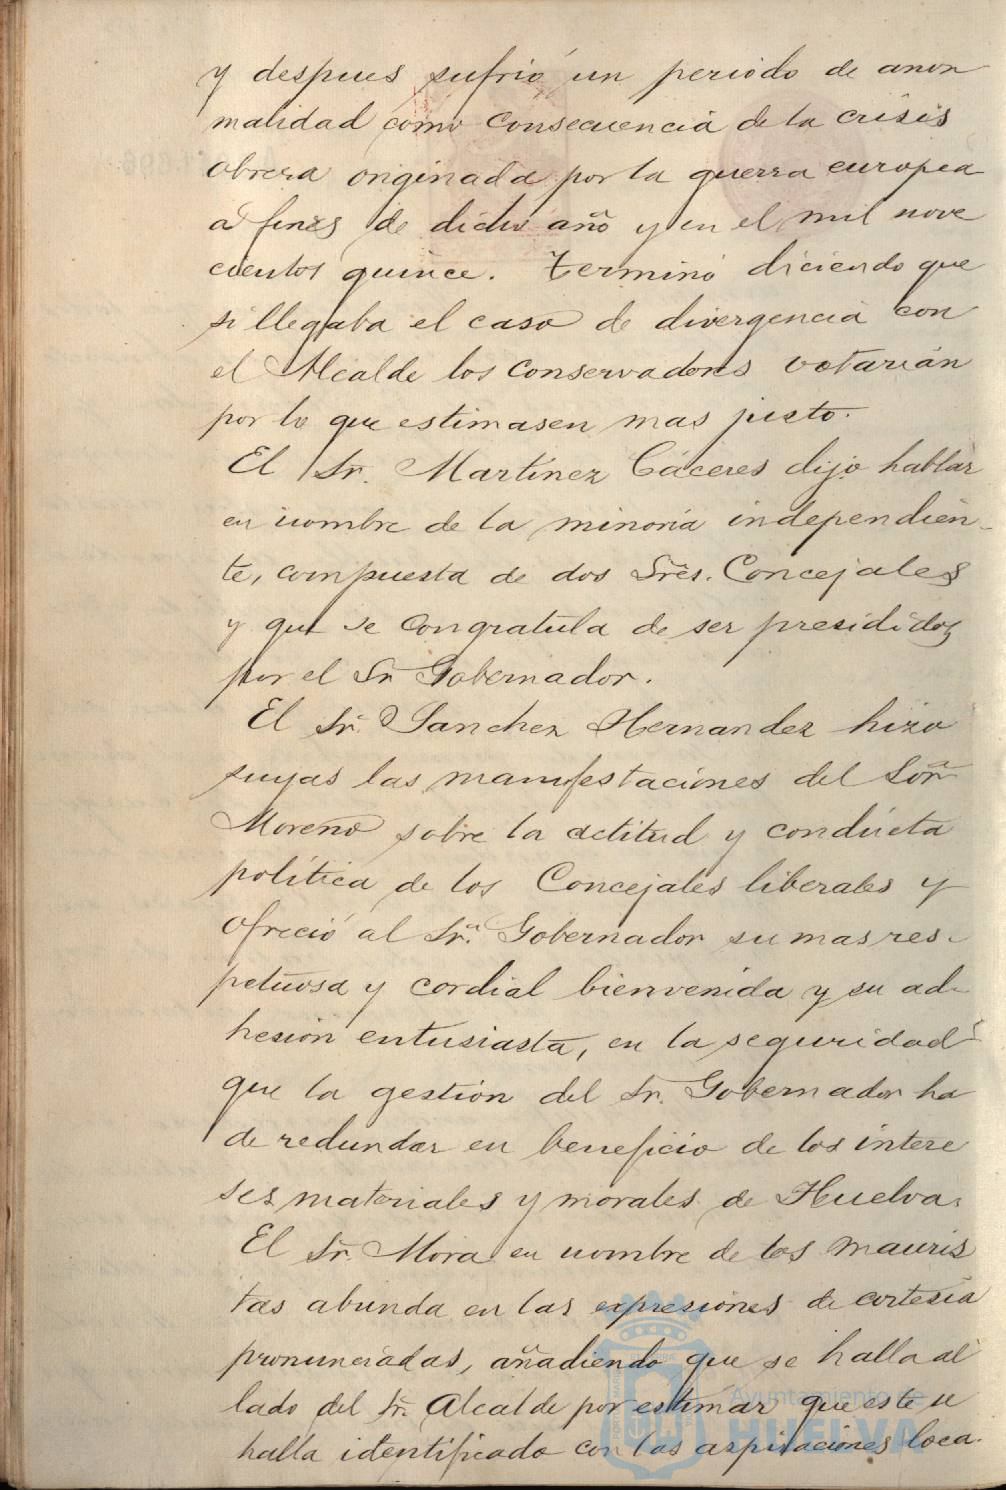 y despues sufrió un periodo de anor
malidad como consecuencia de la crisis
obrera originada por la guerra europea
a fines de dicho año y en el mil nove
cientos quince. Terminó diciendo que
si llegaba el caso de divergencia con
el Alcalde los conservadores votarian
por lo que estimasen mas justo.
El Sr. Martinez Cáceres dijo hablar
en nombre de la minoria independien-
te, compuesta de dos Sres. Concejales
y que se congratula de ser presididos
por el Sr. Gobernador.
El Sr. Sanchez Hernandez hizo
suyas las manifestaciones del Señor
Moreno sobre la actitud y conducta
politica de los Concejales liberales y
ofreció al Sr. Gobernador su mas res-
petuosa y cordial bienvenida y su ad-
hesion entusiasta, en la seguridad
que la gestion del Sr. Gobernador ha
de redundar en beneficio de los intere
ses materiales y morales de Huelva.
El Sr. Mora en nombre de los mauris
tas abunda en las expresiones de cortesia
pronunciadas, añadiendo que se halla al
lado del Sr. Alcalde por estimar que este se
halla identificado con las aspiraciones loca-
Ayuntamiento de
HUELVA